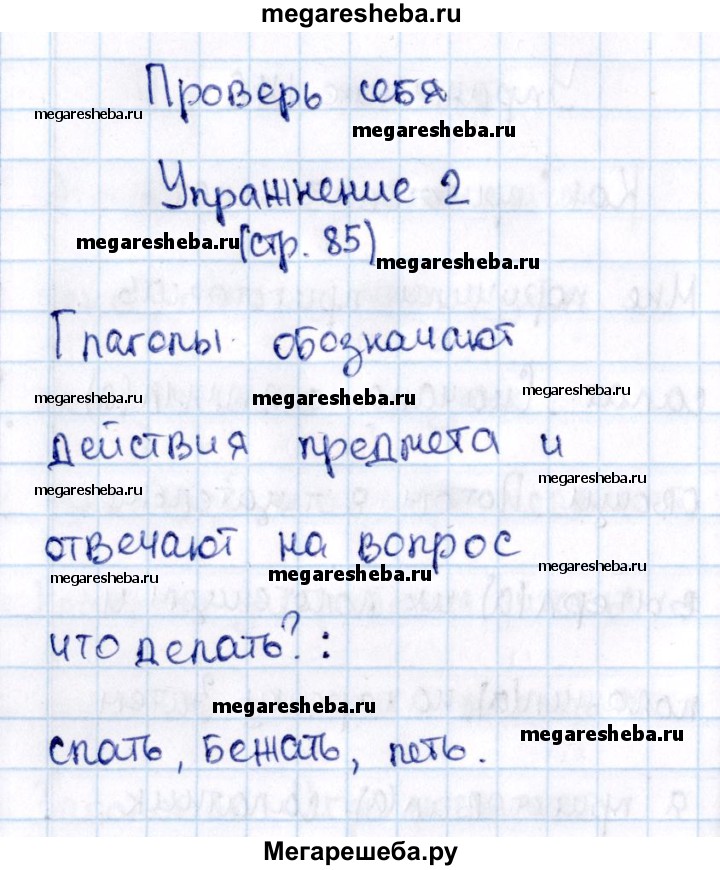 megaresheba.ru
Проверь себя
megaresheba.ru
megaresheba.ru
Упражнение 2
megaresheba.ru
(стр. 85)
megaresheba.ru
Глаголы обозначают
megaresheba.ru
megaresheba.ru
megaresheba.ru
действия предмета и
megaresheba.ru
megaresheba.ru
отвечают на вопрос
megaresheba.ru
megaresheba.ru
megaresheba.ru
что делать? :
megaresheba.ru
megaresheba.ru
спать, бежать, петь.
Мегарешеба.ру